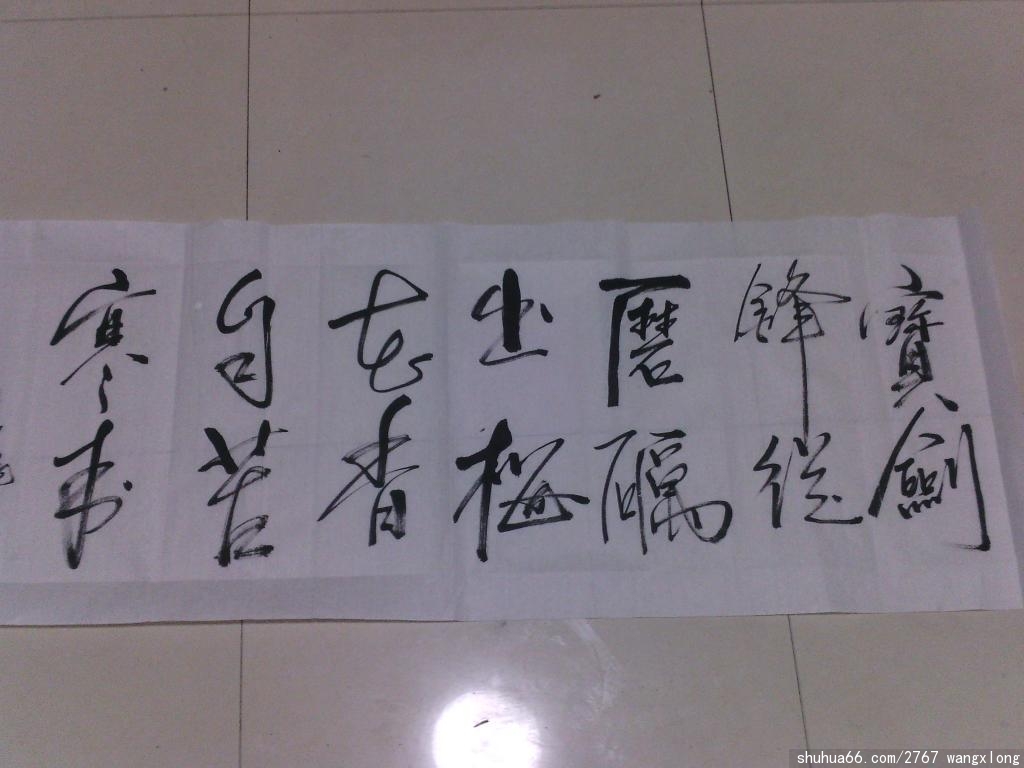 寶劍
鋒從
磨礪
出梅
花香
自苦
寒来
shuhua66.com/2767 wangxlong